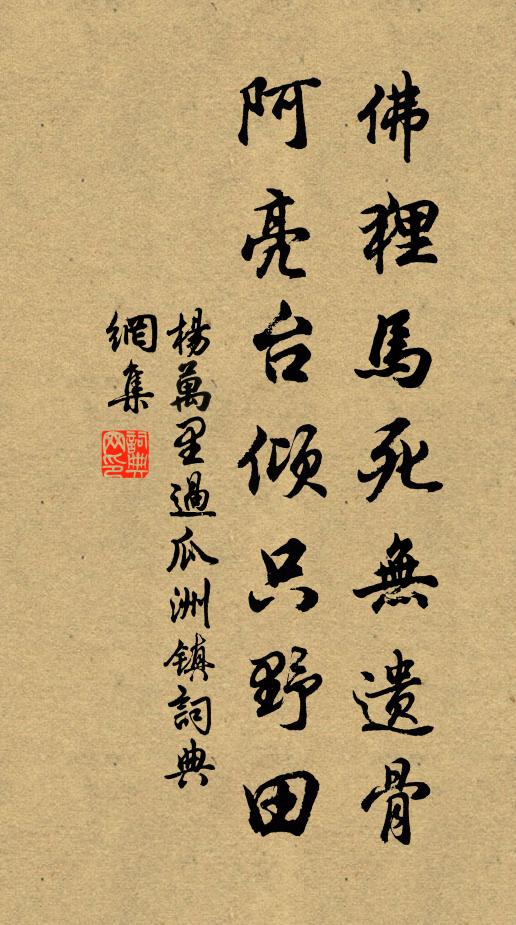 佛狸馬死無遺骨
阿亮台傾只野田
楊萬里過瓜洲鎮詞典
網集
詞典
网印